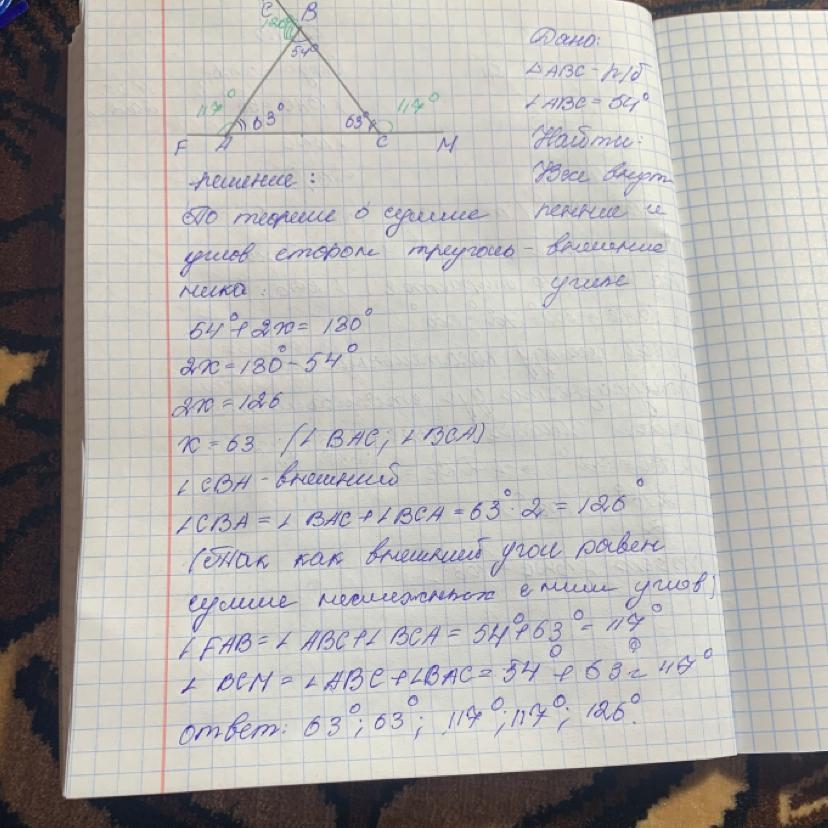 C B
54°
117° 63° 63° 117°
F A C M
Дано:
△ABC - р/б
∠ABC = 54°
Найти:
Все внут
ренние и
внешние
углы
решение:
По теореме о сумме
углов сторон треуголь-
ника:
54° + 2x = 180°
2x = 180° - 54°
2x = 126
x = 63 (∠BAC; ∠BCA)
∠CBA - внешний
∠CBA = ∠BAC + ∠BCA = 63° · 2 = 126°
(Так как внешний угол равен
сумме несмежных с ним углов)
∠FAB = ∠ABC + ∠BCA = 54° + 63° = 117°
∠BCM = ∠ABC + ∠BAC = 54° + 63° = 117°
ответ: 63°; 63°; 117°; 117°; 126°.